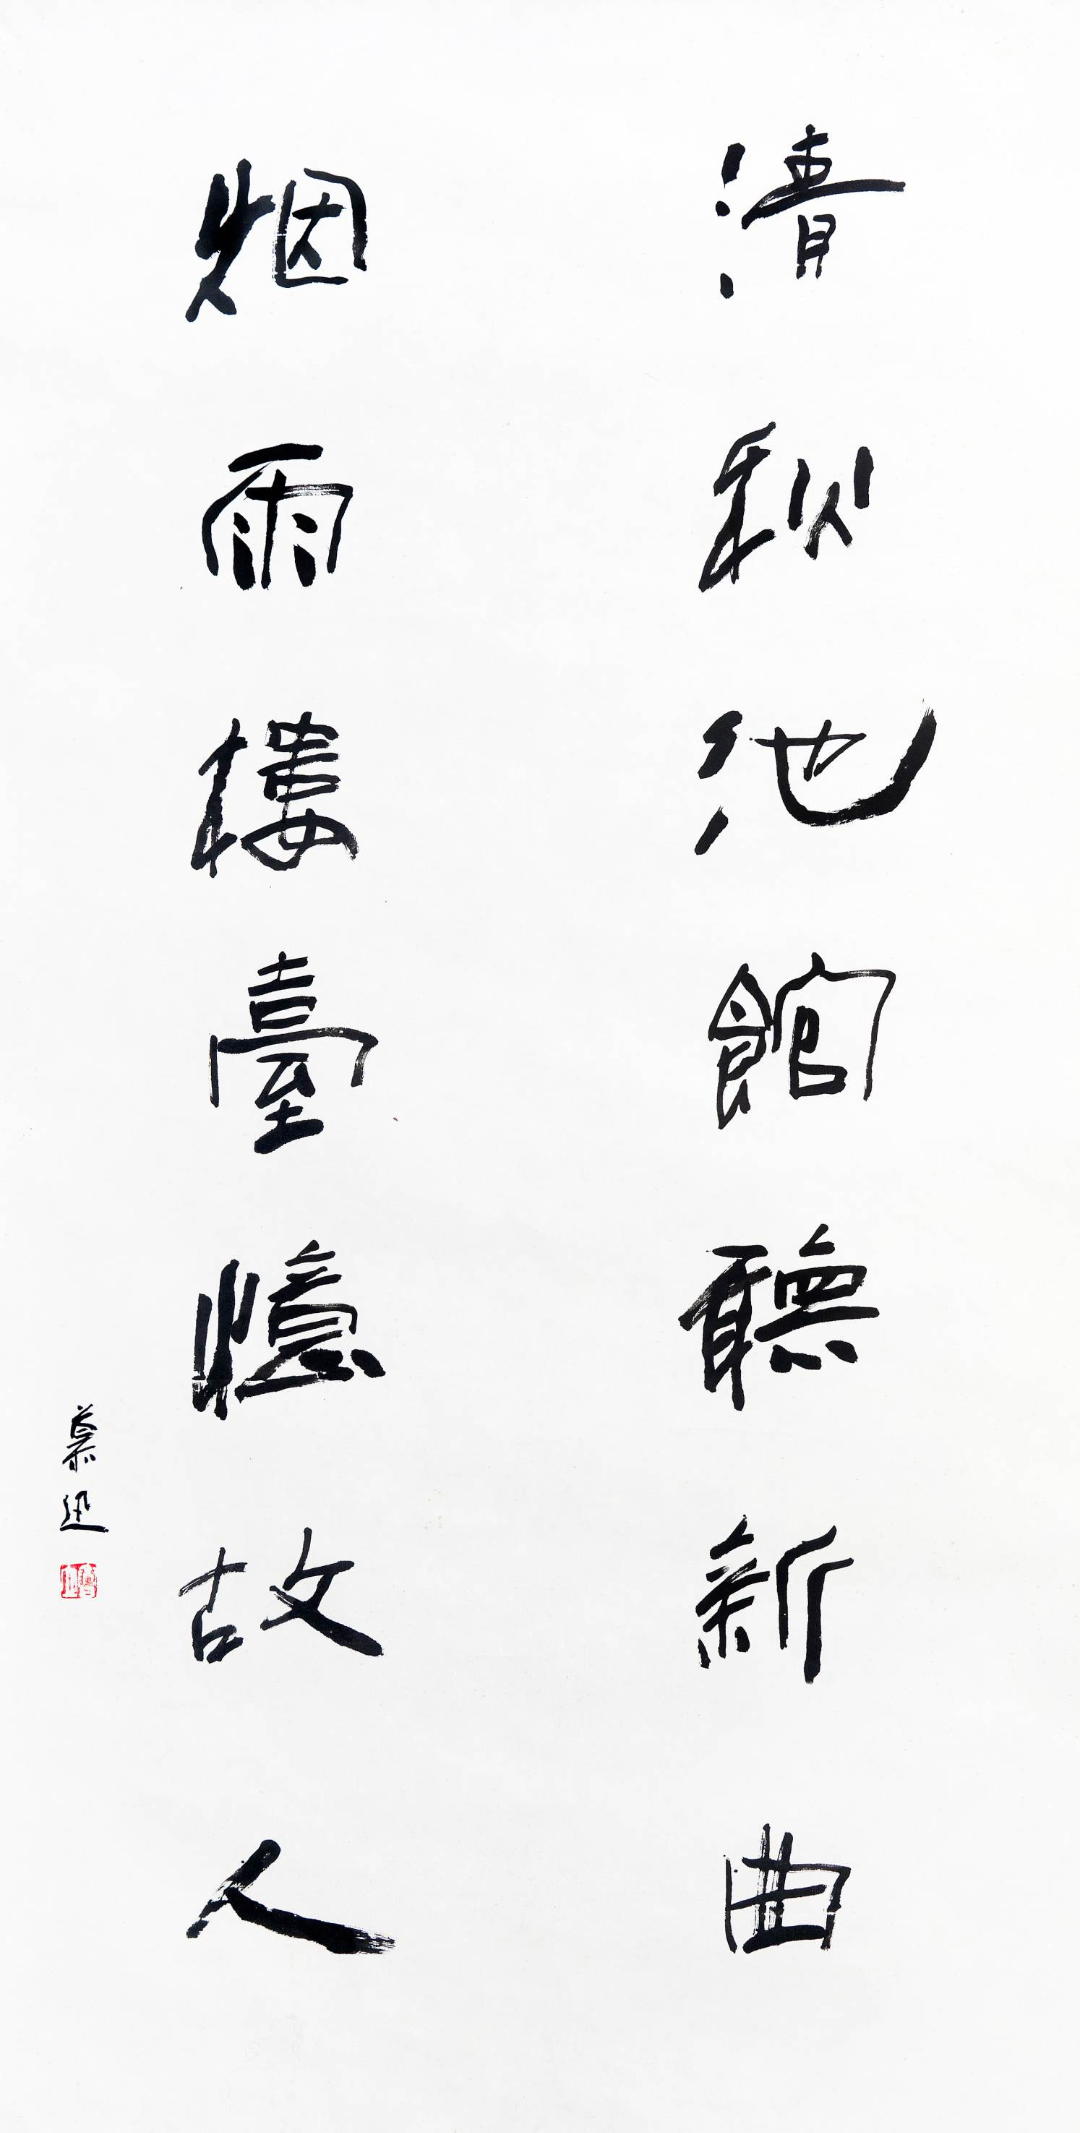 清秋池館聽新曲
烟雨樓臺憶故人
慕迅